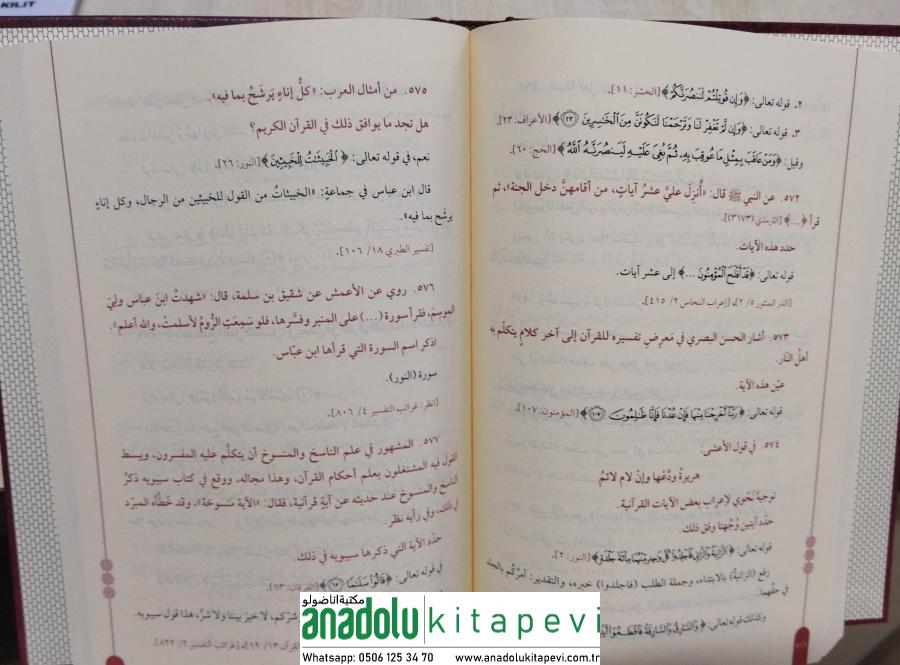 ٢. قوله تعالى: ﴿وَإِن قُوتِلْتُمْ لَنَنصُرَنَّكُمْ﴾ [الحشر: ١١].
٣. قوله تعالى: ﴿وَإِن لَّمْ تَغْفِرْ لَنَا وَتَرْحَمْنَا لَنَكُونَنَّ مِنَ الْخَاسِرِينَ ﴿٢٣﴾﴾ [الأعراف: ٢٣].
وقيل: ﴿وَمَنْ عَاقَبَ بِمِثْلِ مَا عُوقِبَ بِهِ، ثُمَّ بُغِيَ عَلَيْهِ لَيَنصُرَنَّهُ اللَّهُ﴾ [الحج: ٦٠].
٥٧٢. عن النبي ﷺ قال: «أُنزِلَ عليَّ عشرُ آياتٍ، من أقامهنَّ دخل الجنة»، ثم
قرأ ﴿...﴾ [الترمذي (٣١٧٣)].
حدد هذه الآيات.
قوله تعالى: ﴿قَدْ أَفْلَحَ الْمُؤْمِنُونَ ...﴾ إلى عشر آيات.
[الدر المنثور ٥/ ٢، وإعراب النحاس ٢/ ٤١٥].
٥٧٣. أشار الحسن البصري في مَعرِض تفسيره للقرآن إلى آخر كلامٍ يتكلّم به
أهلُ النّار.
عيّن هذه الآية.
قوله تعالى: ﴿رَبَّنَا أَخْرِجْنَا مِنْهَا فَإِنْ عُدْنَا فَإِنَّا ظَالِمُونَ ﴿١٠٧﴾﴾ [المؤمنون: ١٠٧].
٥٧٤. في قول الأعشى:
هريرةَ ودِّعْها وإنْ لام لائمُ
توجيهٌ نَحْوي لإعراب بعض الآيات القرآنية.
حدّد آيتين وُجِّهتا وفق ذلك.
قوله تعالى: ﴿الزَّانِيَةُ وَالزَّانِي فَاجْلِدُوا كُلَّ وَاحِدٍ مِّنْهُمَا مِائَةَ جَلْدَةٍ﴾ [النور: ٢].
رفع (الزانيةُ) بالابتداء، وجملة الطلب (فاجلدوا) خبره، والتقدير: آمرُكُم بالجلد
في حقّهما.
وكذلك قوله تعالى: ﴿وَالسَّارِقُ وَالسَّارِقَةُ فَاقْطَعُوا
٥٧٥. من أمثال العرب: «كلُّ إناءٍ يَرشَحُ بما فيه».
هل تجد ما يوافق ذلك في القرآن الكريم؟
نعم، في قوله تعالى: ﴿الْخَبِيثَاتُ لِلْخَبِيثِينَ﴾ [النور: ٢٦].
قال ابن عباس في جماعةٍ: «الخبيثاتُ من القول للخبيثين من الرجال، وكل إناءٍ
يرشَح بما فيه».
[تفسير الطبري ١٨/ ١٠٦].
٥٧٦. روي عن الأعمش عن شقيق بن سلمة، قال: «شهدتُ ابنَ عباس وليَ
الموسِمَ، فقرأ سورة (...) على المنبر وفسَّرها، فلو سَمِعَتِ الرُّومُ لأسلمتْ، والله أعلم».
اذكر اسم السورة التي قرأها ابن عبّاس.
سورة (النور).
[انظر: غرائب التفسير ٤/ ٨٠٦].
٥٧٧. المشهور في علم الناسخ والمنسوخ أن يتكلَّم عليه المفسرون، ويبسط
القولَ فيه المشتغلون بعلم أحكام القرآن، وهذا مجاله، ووقع في كتاب سيبويه ذكرُ
الناسخ والمنسوخ عند حديثه عن آيةٍ قرآنية، فقال: «الآية منسوخة»، وقد خطَّأه المبرّد
في ذلك، وفي رأيه نظر.
حدّد الآية التي ذكرها سيبويه في ذلك.
في قوله تعالى: ﴿قَالُوا سَلَامًا ﴿٦٣﴾﴾ [الفرقان: ٦٣].
شرّكم، لا خيرَ بيننا ولا شرَّ، هذا قول سيبويه.
١٣/ ٦٩، وغرائب التفسير ٢/ ٨٢٢].
مكتبة اناضولو
anadolukitapevi
Whatsapp: 0506 125 34 70 www.anadolukitapevi.com.tr
KİLİT